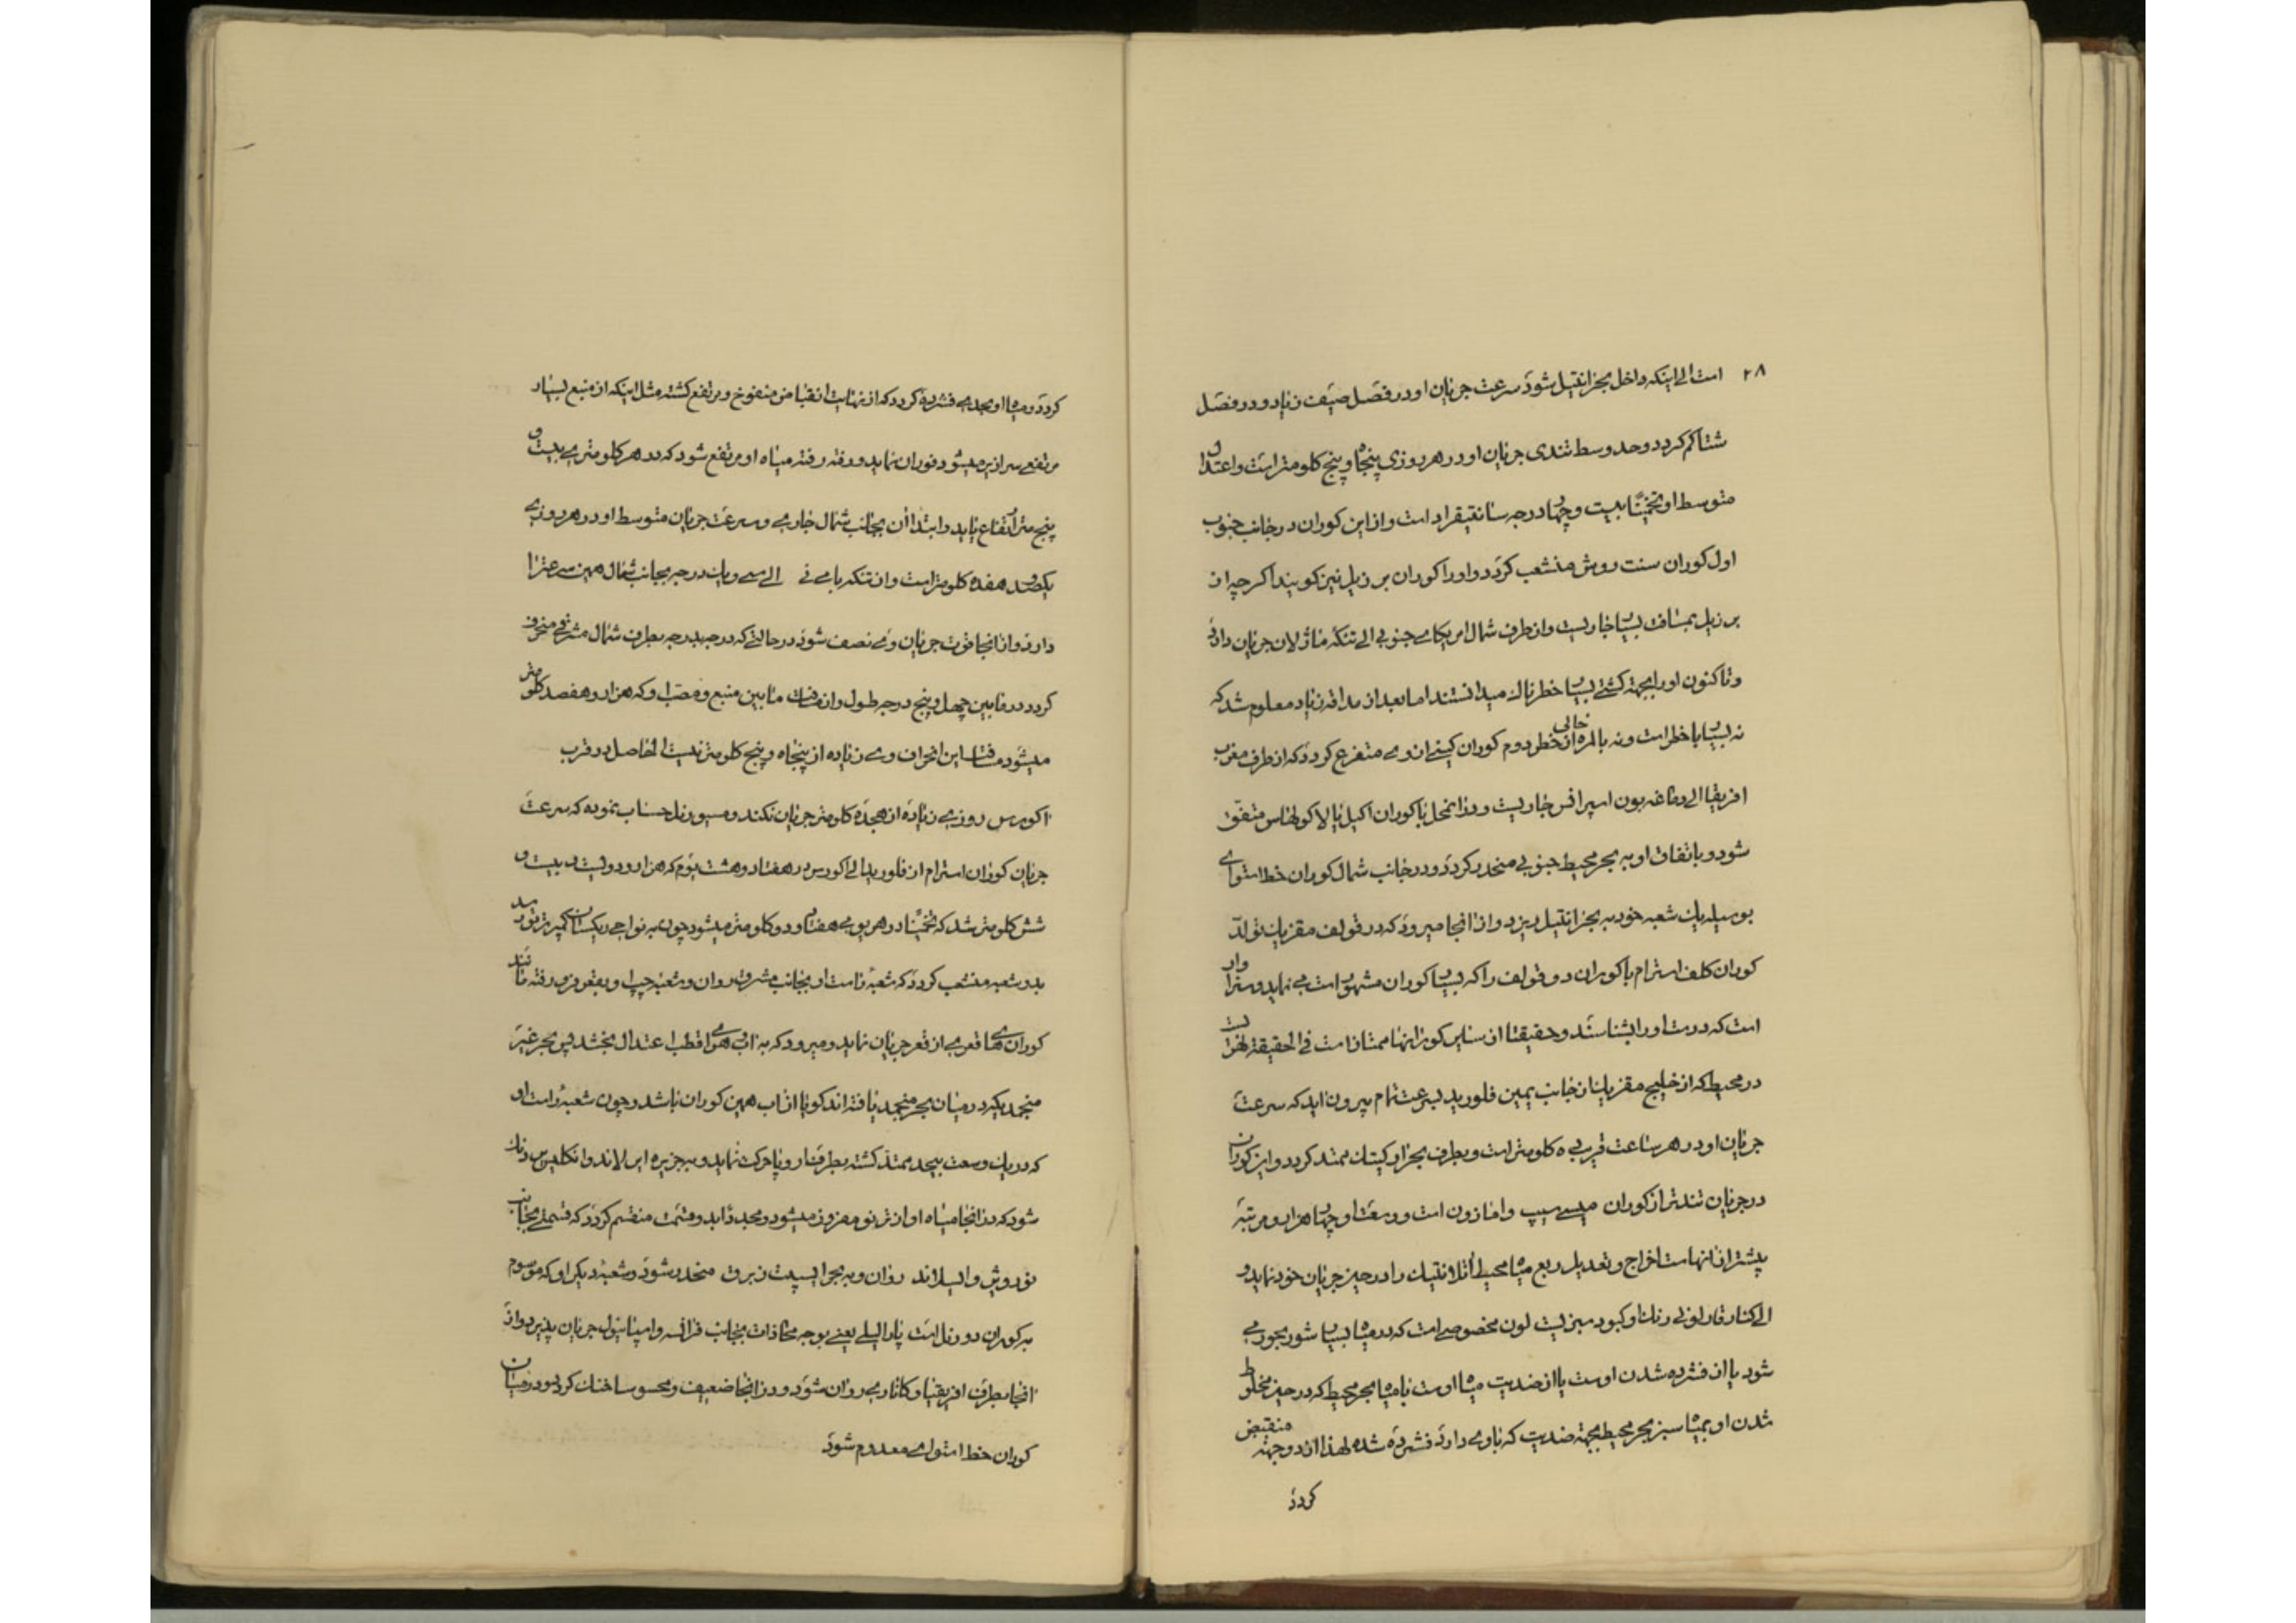 ۲۸ است الی اینکه داخل بحر انتیل شود سرعت جریان او در فصل صیف زیاد و در فصل
شتا کم گردد و حد وسط تندی جریان او در هر روزی پنجاه و پنج کلومتر است و اعتدال
متوسط او تخمینًا بیست و چهار درجه سانتیقراد است و از این کوران در جانب جنوب
اول کوران سنت روش منشعب گردد و او را کوران برزیل نیز گویند اگر چه از
برزیل بمسافت بسیار جاریست و از طرف شمال امریکای جنوبی الی تنگه ماژلان جریان دارد
و تاکنون او را بجهة کشتی بسیار خطرناک میدانستند اما بعد از مداقه زیاد معلوم شد که
نه بسیار با خطر است و نه بالمره از خطر خالی دوم کوران گینی از وی متفرع گردد که از طرف مغرب
افریقا الی دماغه بون اسپرانس جاریست و در انمحل با کوران اکیل یا لاکولهاس متفق
شود و باتفاق او به بحر محیط جنوبی منحدر گردد و در جانب شمال کوران خط استوای
بوسیله یک شعبه خود به بحر انتیل ریزد و از انجا میرود که در قولف مقزیک تولد
کوران کلف استرام یا کوران دو قولف را که بسیار کوران مشهور است می نماید و سزاوار
است که درست او را بشناسند و حقیقتا از سایر کورانها ممتاز است فی الحقیقة نهریست
در محیط که از خلیج مقزیک از جانب یمین فلورید بسرعت تمام بیرون اید که سرعت
جریان او در هر ساعت قریب ۵ کلومتر است و بطرف بحر ارکتیک ممتد گردد و این کوران
در جریان تندتر از کوران میسی سیپ و امازون است و وسعت او چهار هزار و مرتبه
بیشتر از انهاست اخراج و تعدیل ربع میاه محیط اتلانتیک را در حیز جریان خود نماید و
الی کنار قارلونی رنک او کبود میز لیت لون مخصوصی است که در میاه بسیار شور بحور می
شود یا از فشرده شدن اوست یا از ضدیت میاه اوست با میاه بحر محیط که در حیز مخلوط
شدن او بمیاه سبز بحر محیط بجهة ضدیت که با وی دارد فشرده شده لهذا از دو جهته منقبض
گردد
گردد و میاه او بحدی فشرده گردد که از نهایت انقباض منفوخ و مرتفع گشته مثل اینکه از منبع بسیار
مرتفعی سرازیر میشود فوران نماید و رفته رفته میاه او مرتفع شود که در هر کلومتری بیست و
پنج متر ارتفاع یابد و ابتدا از بجانب شمال جاری و سرعت جریان متوسط او در هر روزی
یکصد هفده کلومتر است و از تنکه باهی نی الی سی و یک درجه بجانب شمال همین سرعت را
دارد و از انجا قوت جریان وی نصف شود در حالتی که درجه بدرجه بطرف شمال مشرقی منحرف
گردد در مابین چهل و پنج درجه طول و از مسافت مابین منبع و مصب او که هزار و هفصد کلومتر
میشود مسافت این انحراف وی زیاده از پنجاه و پنج کلومتر نیست الحاصل در قرب
اکورس روزی زیاده از هجده کلومتر جریان نکند و مسیو رنل حساب نموده که سرعت
جریان کوران استرام از فلورید الی اکورس در هفتاد و هشت یوم که هزار و دولیست و بیست و
شش کلومتر شد که تخمینًا در هر یومی هفتاد و دو کلومتر میشود چون به نواحی ریکستان کمبر تر نو رسد
بدو شعبه منشعب گردد که شعبۀ راست او بجانب مشرق روان و شعبۀ چپ او بقعر فرو رفته مانند
کورانهای قعری از قعر جریان نماید و میرود که به اب و هوای قطب اعتدال بخشد پس بحر غیر
منجمدیکه در میان بحر منجمد یافته اند گویا از اب همین کوران باشد و چون شعبۀ راست او
که در یک وسعت بیحد ممتد گشته بطرف اروپا حرکت نماید و بجزیره ایرلاند و انکلیس نزدیک
شود که در انجا میاه او از تر نو مفروز میشود و مجددًا بدو قسمت منقسم گردد که قسمتی بجانب
نوروش و ایسلاند روان و به بحر ایسپت زبرق منحدر شود و شعبۀ دیگر او که موسوم
به کوران دو رنل است پارالیلی یعنی بوجه محاذات بجانب فرانسه و اسپانیول جریان پذیرد و از
انجا بطرف افریقیا و کاناری روان شود و در انجا ضعیف و محسوسا خنک گردد و در میان
کوران خط استوای معدوم شود